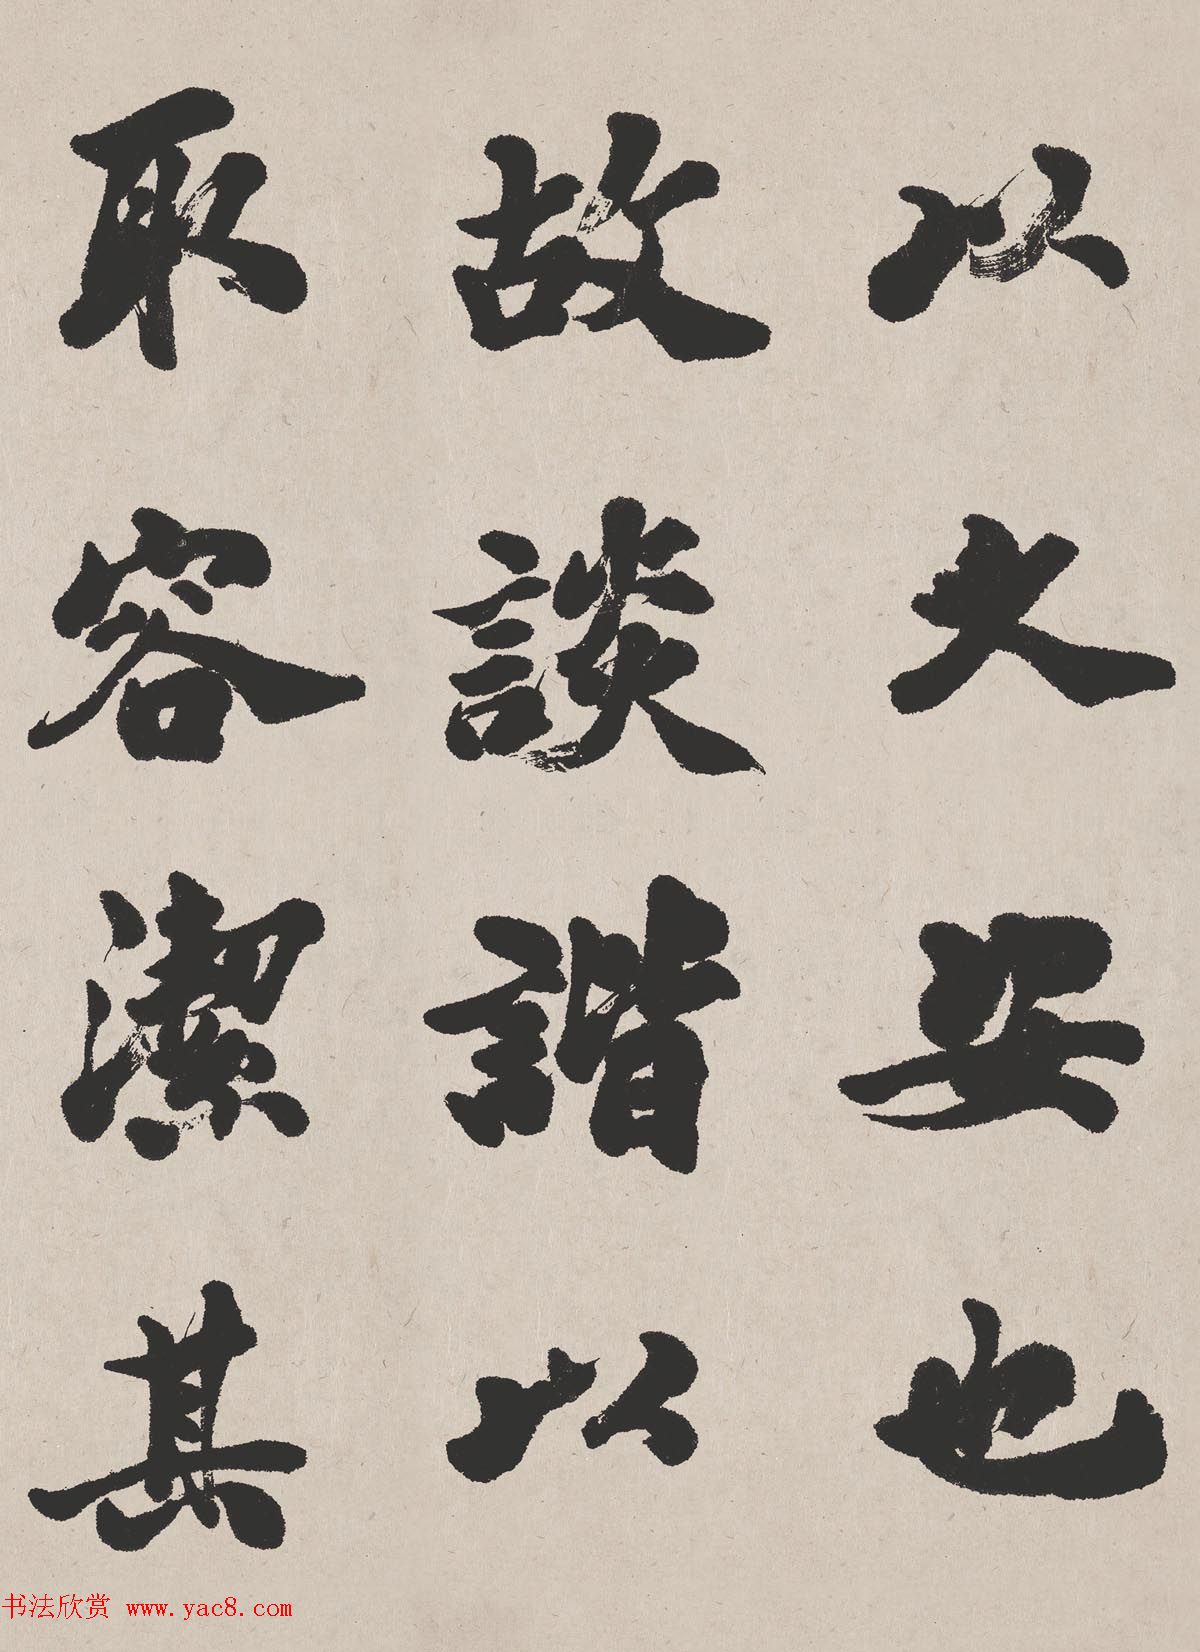 以久安也
故談諧以
取容潔其
书法欣赏 www.yac8.com